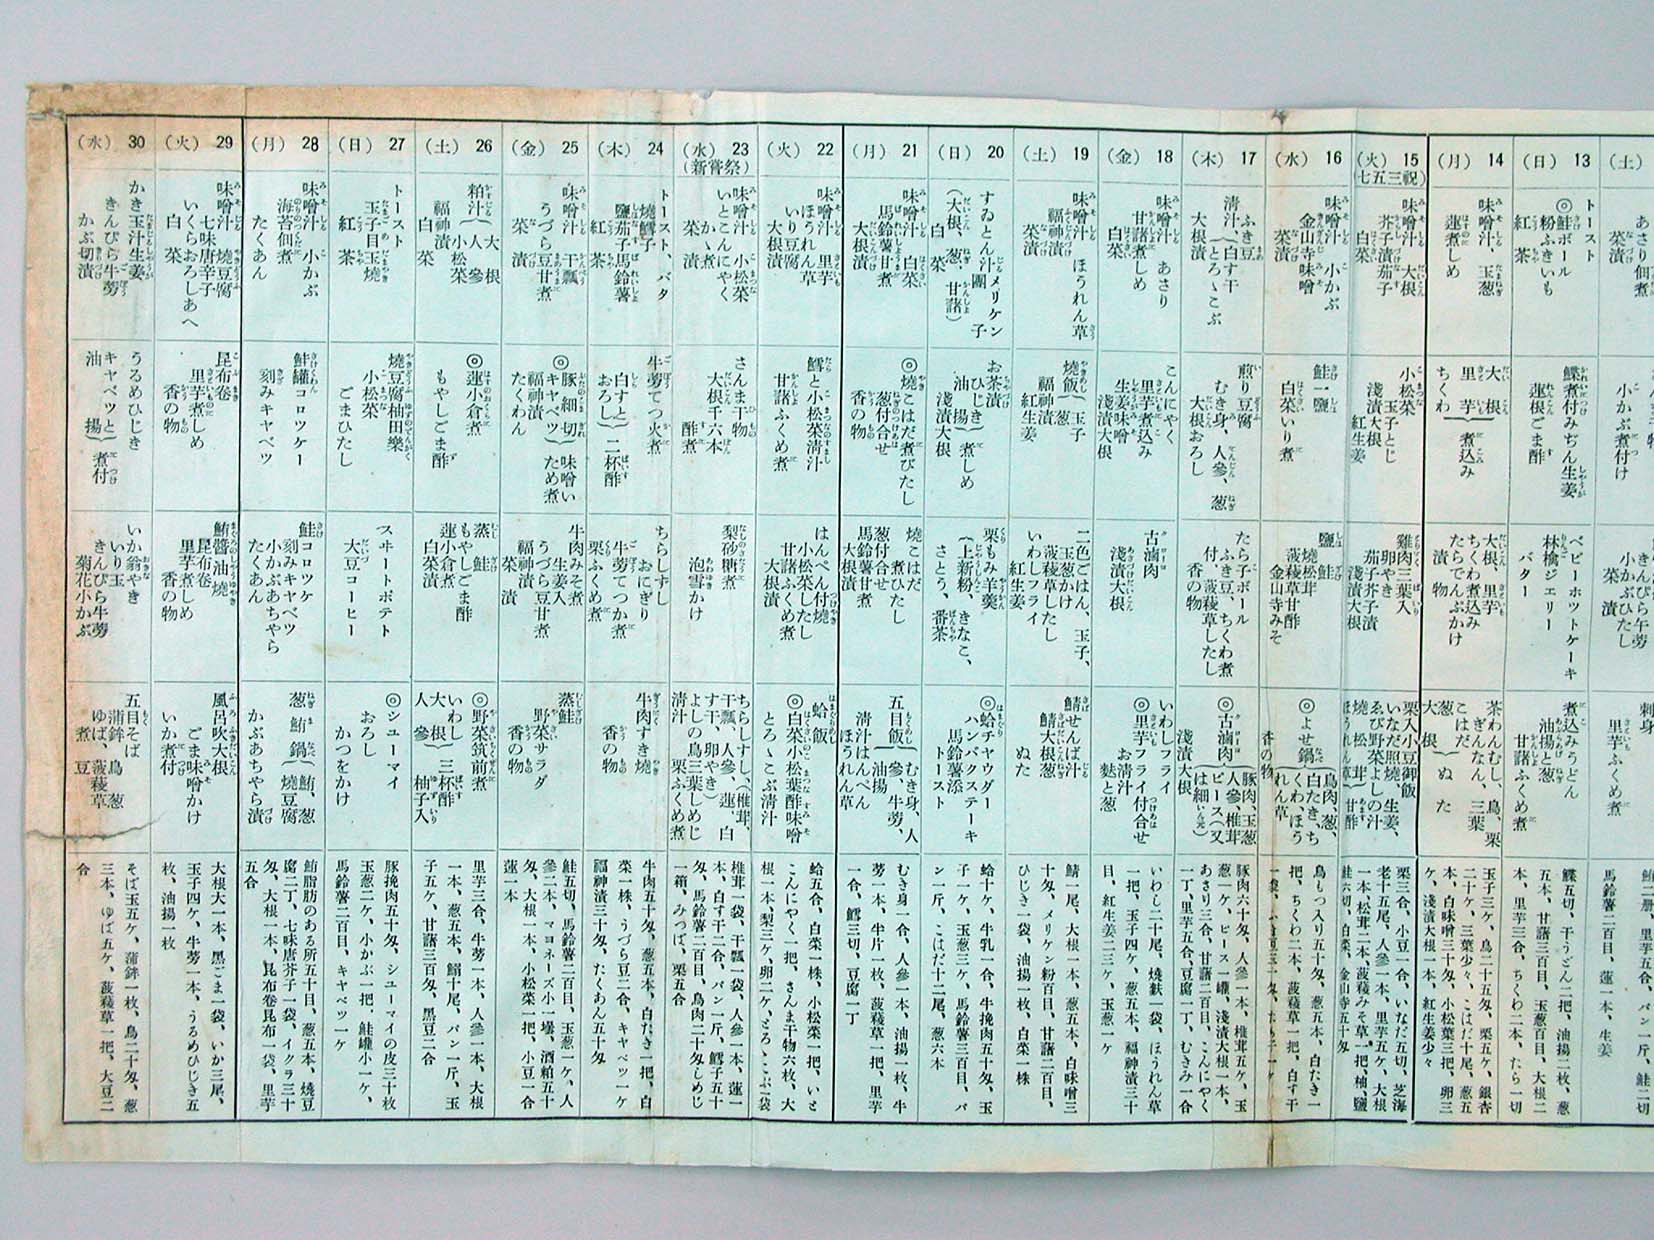 (土)
あさり佃煮
菜漬
小かぶ煮付け
きんぴら午蒡
小かぶひたし
菜漬
刺身
里芋ふくめ煮
馬鈴薯二百目、蓮一本、生姜
13
(日)
トースト
◎鮭ボール
粉ふきいも
紅茶
鰈煮付みぢん生姜
蓮根ごま酢
ベビーホツトケーキ
林檎ジエリー
バター
煮込みうどん
油揚と葱
甘藷ふくめ煮
鰈五切、干うどん二把、油揚二枚、葱
五本、甘藷三百目、玉葱百目、大根二
本、里芋三合、ちくわ二本、たら一切
14
(月)
味噌汁、玉葱
蓮煮しめ
大根
里芋}煮込み
ちくわ
大根、里芋
ちくわ煮込み
たらでんぶかけ
漬物
茶わんむし、鳥、栗
ぎんなん、三葉
こはだ
葱}ぬた
大根
玉子三ケ、鳥二十五匁、栗五ケ、銀杏
二十ケ、三葉少々、こはだ十尾、葱五
本、白味噌三十匁、小松葉三把、卵三
ケ、淺漬大根一本、紅生姜少々
15
(火)
(七五三祝)
味噌汁 大根
芥子漬茄子
白菜漬
小松菜
玉子とじ
淺漬大根
紅生姜
雞肉三葉入
卵やき
茄子芥子漬
淺漬大根
栗入小豆御飯
いなだ照燒、生姜、
ゑび野菜よしの汁
燒松茸}甘酢
ほうれん草
栗三合、小豆一合、いなだ五切、芝海
老十五尾、人參一本、里芋五ケ、大根
一本、松茸二本、菠薐みそ草一把、柚、鹽
鮭六切、白菜、金山寺五十匁
16
(水)
味噌汁 小かぶ
金山寺味噌
菜漬
鮭一鹽
白菜いり煮
鹽鮭
燒松茸
菠薐草甘酢
金山寺みそ
◎よせ鍋{鳥肉、葱、
白たき、ち
くわ、ほう
れん草
香の物
鳥もつ入り五十匁、葱五本、白たき一
把、ちくわ二本、菠薐草一把、白す干
17
(木)
ふき豆
清汁{白す干
とろゝこぶ
大根漬
煎り豆腐
むき身、人參、葱
大根おろし
たら子ボール
ふき豆、ちくわ煮
付、菠薐草したし
香の物
◎古滷肉{豚肉、玉葱
人參、椎茸
ピース(又
は細ん元)
淺漬大根
豚肉六十匁、人參一本、椎茸五ケ、玉
葱一ケ、ピース一罐、淺漬大根一本、
あさり三合、甘藷二百目、こんにやく
一丁、里芋五合、豆腐一丁、むきみ一合
18
(金)
味噌汁 あさり
甘藷煮しめ
白菜漬
こんにやく
里芋煮込み
生姜味噌
淺漬大根
古滷肉
淺漬大根
いわしフライ
◎里芋フライ付合せ
お清汁
麩と葱
いわし二十尾、燒麩一袋、ほうれん草
一把、玉子四ケ、葱五本、福神漬三十
目、紅生姜二三ケ、玉葱一ケ
19
(土)
味噌汁 ほうれん草
福神漬
菜漬
燒飯{玉子
葱
福神漬
紅生姜
二色ごはん、玉子、
玉葱かけ
菠薐草したし
いわしフライ
紅生姜
鯖せんば汁
鯖大根葱
ぬた
鯖一尾、大根一本、葱五本、白味噌三
十匁、メリケン粉百目、甘藷二百目、
ひじき一袋、油揚一枚、白菜一株
20
(日)
すゐとん汁メリケン
團子
(大根、葱、甘藷)
白菜
お茶漬
ひじき}煮しめ
油揚
淺漬大根
栗もみ羊羹
(上新粉、きなこ、
さとう、番茶
◎蛤チヤウダー
ハンバクステーキ
馬鈴薯添
トースト
蛤十ケ、牛乳一合、牛挽肉五十匁、玉
子一ケ、玉葱三ケ、馬鈴薯三百目、パ
ン一斤、こはだ十二尾、葱六本
21
(月)
味噌汁 白菜
馬鈴薯甘煮
大根漬
◎燒こはだ煮びたし
葱付合せ
香の物
燒こはだ
煮ひたし
葱付合せ
馬鈴薯甘煮
大根漬
五目飯{むき身、人
參、牛蒡、
油揚
清汁はんぺん
ほうれん草
むき身一合、人參一本、油揚一枚、牛
蒡一本、牛片一枚、菠薐草一把、里芋
一合、鱈三切、豆腐一丁
22
(火)
味噌汁 里芋
ほうれん草
いり豆腐
大根漬
鱈と小松菜清汁
甘藷ふくめ煮
はんぺん付燒
小松菜したし
甘藷ふくめ煮
大根漬
蛤飯
◎白菜小松葉酢味噌
とろゝこぶ清汁
蛤五合、白菜一株、小松菜一把、いと
こんにやく一把、さんま干物六枚、大
根一本、梨三ケ、卵二ケ、とろゝこぶ一袋
23
(水)
(新嘗祭)
味噌汁 小松菜
いとこんにやく
かゝ煮
菜漬
さんま干物
大根千六本
酢煮
梨砂糖煮
泡雪かけ
ちらしすし、(椎茸、
干瓢、人參、蓮、白
す干、卵やき)
よしの鳥三葉しめじ
清汁
栗ふくめ煮
椎茸一袋、干瓢一袋、人參一本、蓮一
本、白す干二合、パン一斤、鱈子五十
匁、馬鈴薯二百目、鳥肉二十匁しめじ
一箱、みつば、栗五合
24
(木)
トースト、バタ
燒鱈子
鹽茄子馬鈴薯
紅茶
牛蒡てつ火煮
白すと}二杯酢
おろし
ちらしすし
おにぎり
牛蒡てつか煮
栗ふくめ煮
牛肉すき燒
香の物
牛肉五十匁、葱五本、白たき一把、白
菜一株、うづら豆二合、キヤベツ一ケ
福神漬三十匁、たくあん五十匁
25
(金)
味噌汁 干瓢
うづら豆甘煮
菜漬
◎豚細切}味噌い
キヤベツ ため煮
福神漬
たくわん
牛肉みそ煮
生姜入
うづら豆甘煮
福神漬
菜漬
蒸鮭
野菜サラダ
香の物
鮭五切、馬鈴薯二百目、玉葱一ケ、人
參二本、マヨネーズ小一壜、酒粕五十
匁、大根一本、小松菜一把、小豆一合
蓮一本
26
(土)
粕汁{大根
人參
小松菜
福神漬
白菜
◎蓮小倉煮
もやしごま酢
蒸鮭
もやしごま酢
蓮小倉煮
白菜漬
◎野菜筑前煮
いわし
大根}三杯酢
人參 柚子入
里芋三合、牛蒡一本、人參一本、大根
一本、葱五本、鰯十尾、パン一斤、玉
子五ケ、甘藷三百匁、黑豆二合
27
(日)
トースト
玉子目玉燒
紅茶
燒豆腐柚田樂
小松菜
ごまひたし
スヰートポテト
大豆コーヒー
◎シユーマイ
おろし
かつをかけ
豚挽肉五十匁、シユーマイの皮三十枚
玉葱二ケ、小かぶ一把、鮭罐小一ケ、
馬鈴薯二百目、キヤベツ一ケ
28
(月)
味噌汁 小かぶ
海苔佃煮
たくあん
鮭罐コロツケー
刻みキヤベツ
鮭コロツケ
刻みキヤベツ
小かぶあちやら
たくあん
葱鮪鍋{鮪、葱
燒豆腐
かぶあちやら漬
鮪脂肪のある所五十目、葱五本、燒豆
腐二丁、七味唐芥子一袋、イクラ三十
匁、大根一本、昆布卷昆布一袋、里芋
五合
29
(火)
味噌汁 燒豆腐
七味唐辛子
いくらおろしあへ
白菜
昆布卷
里芋煮しめ
香の物
鮪醬油燒
昆布卷
里芋煮しめ
香の物
風呂吹大根
ごま味噌かけ
いか煮付
大根大一本、黑ごま一袋、いか三尾、
玉子四ケ、牛蒡一本、うるめひじき五
枚、油揚一枚
30
(水)
かき玉汁生姜
きんぴら牛蒡
かぶ切漬
うるめひじき
キヤベツと}煮付
油揚
いか翁やき
いり玉
きんぴら牛蒡
菊花小かぶ
五目そば
蒲鉾 鳥 葱
ゆば、菠薐草
煮豆
そば玉五ケ、蒲鉾一枚、鳥二十匁、葱
三本、ゆば五ケ、菠薐草一把、大豆二
合